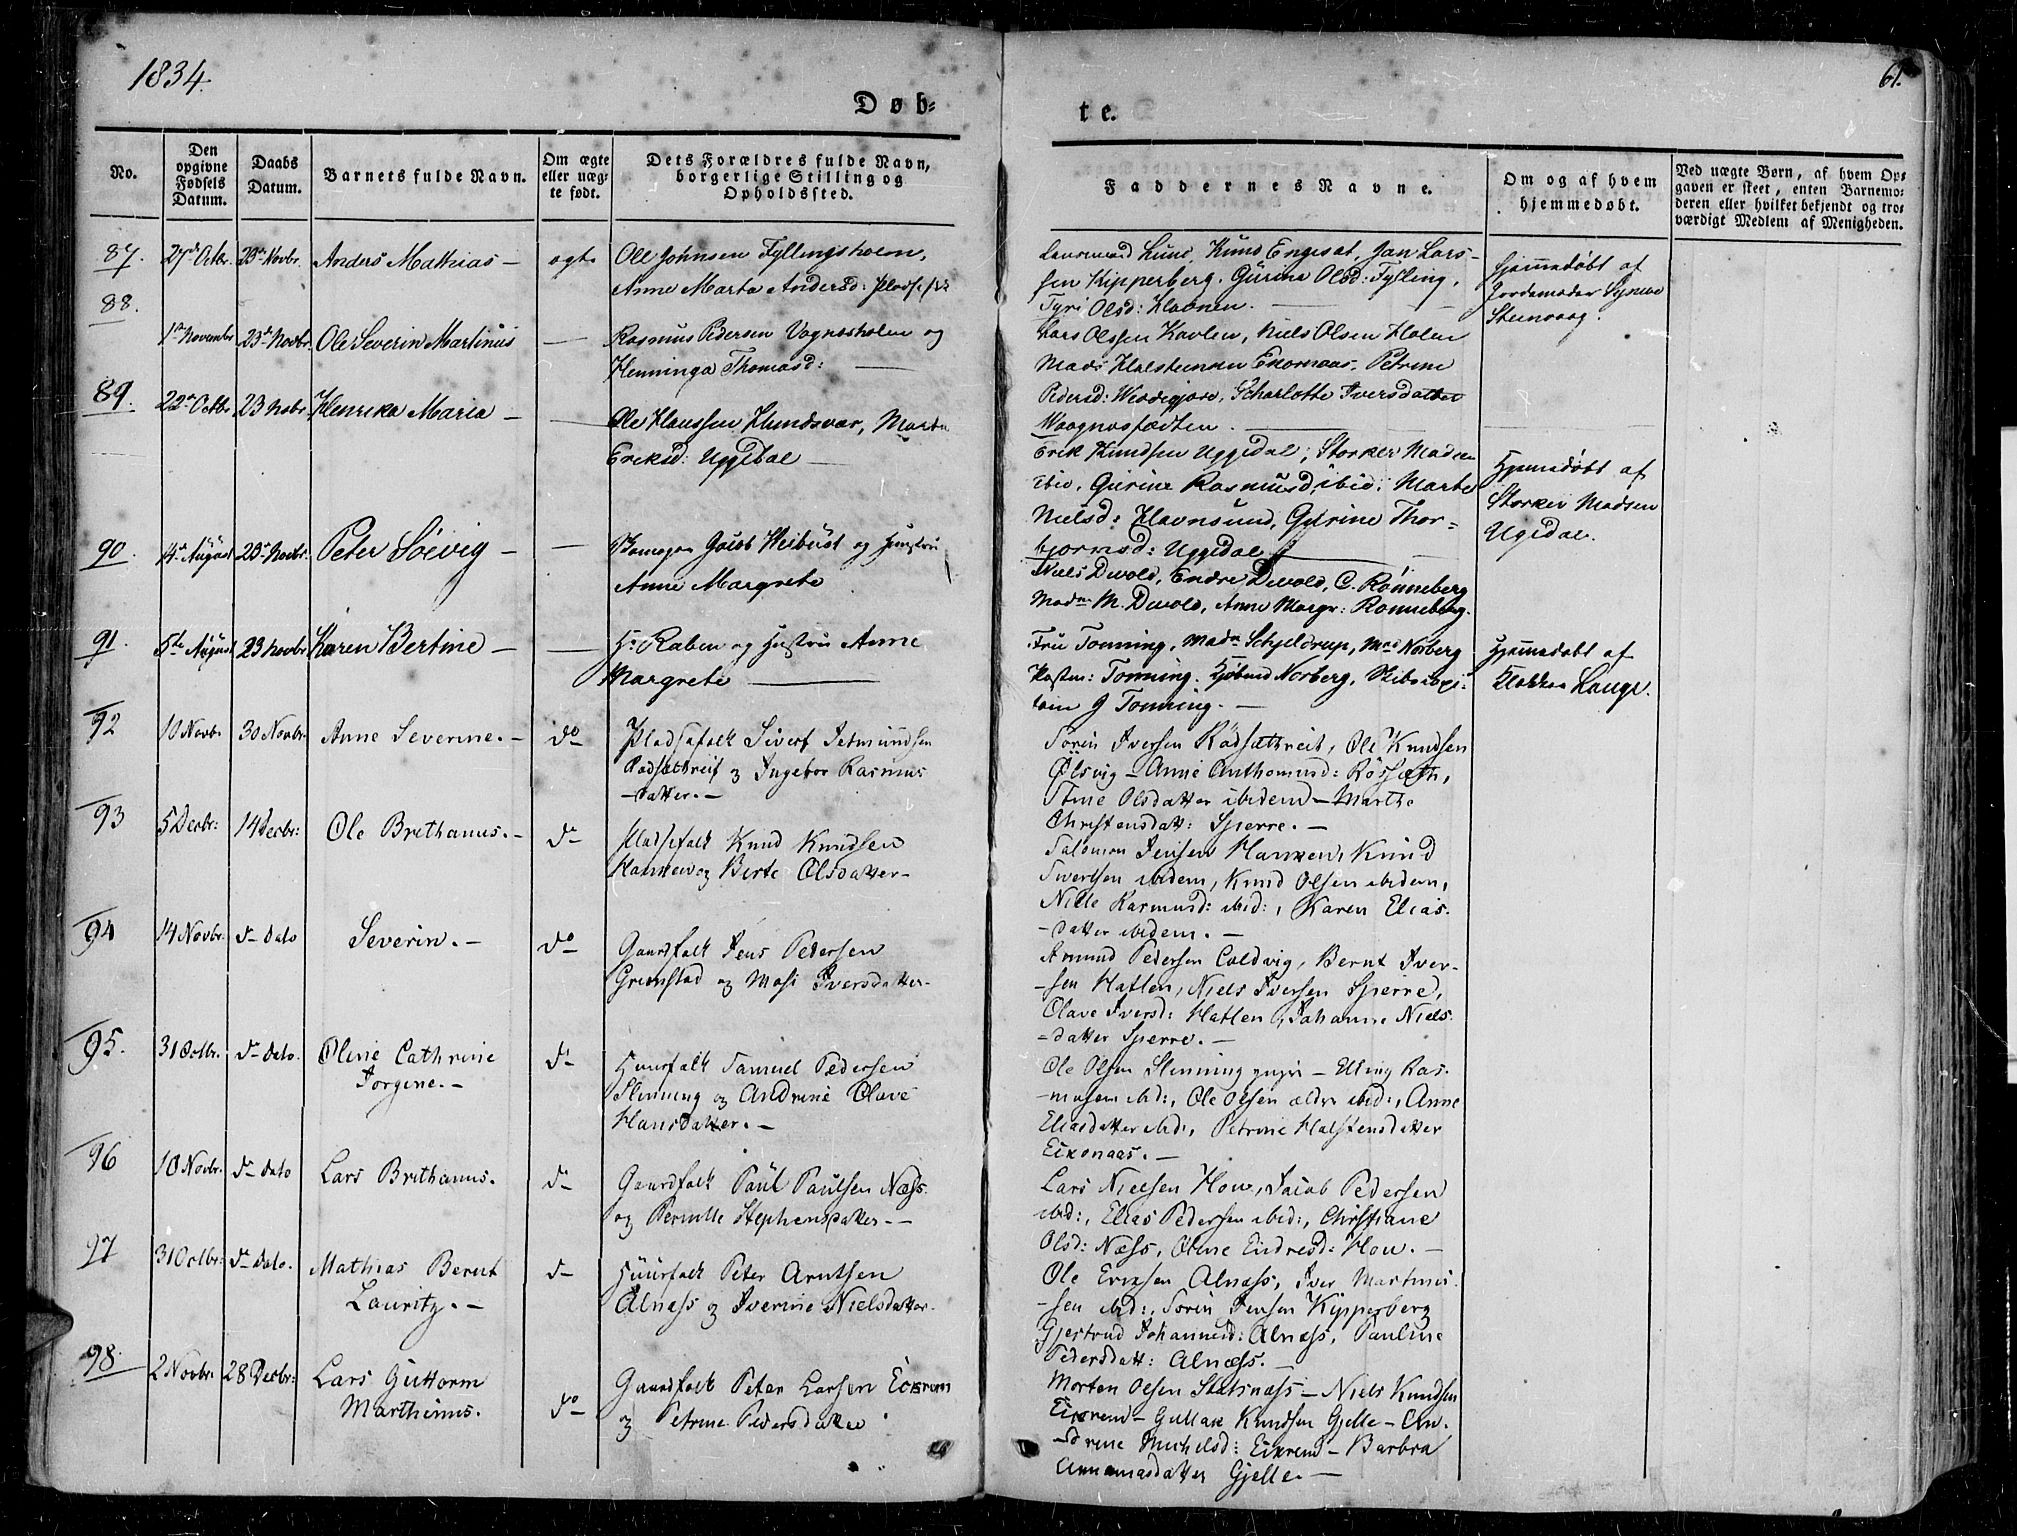 1834.
61.
Døb-
te.
No.
Den opgivne Fødsels Datum.
Daabs Datum.
Barnets fulde Navn.
Om ægte eller uægte født.
Dets Forældres fulde Navn, borgerlige Stilling og Opholdssted.
Faddernes Navne.
Om og af hvem hjemmedøbt.
Ved uægte Børn, af hvem Opgaven er skeet, enten Barnemoderen eller hvilket bekjendt og troværdigt Medlem af Menigheden.
87. 27de Octbr. 23de Novbr. Anders Mathias — ægte
Ole Johnsen Fyllingsholm,
Anne Marta Andersd:
Lund, Knud Engeset, Jan Lars-
sen Kipperberg, Gurine Olsd: Fylling,
Olsd: Havnen.
Hjemmedøbt af
Jordemoder
Steinvaag.
88. 1ste November 23de Novbr. Ole Severin Martinus —
Rasmus Pedersen Vagnesholm og
Henninga Thomasd:
Lars Olssen Kavlen, Niels Olsen Holen
Mads Halsteinsen Exornaas, Petrine
Pedersd: Scharlotte Iversdatter
89. 22de Octbr. 23 Nobr. Henrika Maria —
Ole Hanssen Hundsvær, Marta
Eriksd: Uggedal —
Erik Knudsen Uggedal, Storker Madsen
ibid, Gurine Rasmusd: ibid, Marte
Nielsd: Havnsund, Gurine Thor-
bjørnsd: Uggedal
Hjemmedøbt af
Storker Madsen
Ugedal.
90. 14de August 23de Novbr. Peter Søevig —
Jacob Weibust og Hustru
Anne Margrete
Niels Devold, Endre Devold, C. Rønneberg
Madm M. Devold, Anne Margr: Rønneberg.
91. 5te August 23 Novbr Karen Bertine —
Hr Raben og Hustru Anne
Margrete —
Fru Tonning, Madm Schjeldrup, Norberg
Tonning. Kjøbmd Norberg, Skibscapi-
tain J Tonning.
Hjemmedøbt af
Klokker Lange.
92 10 Novbr 30 Novbr. Anne Severine. — do
Pladsefolk Sivert Ietmundsen
Rødsæthreit og Ingebor Rasmus
-datter. —
Søren Iversen Rødsæthreit, Ole Knudsen
Ølsvig — Anne Anthonusd: Røssæth,
Stine Olsdatter ibidem — Marthe
Christensdatt: Spierre. —
93 5 Decbr: 14 Decbr: Ole Brithanus. — do
Pladsefolk Knud Knudsen
Hanken og Birte Olsdatter —
Salomon Jensen Hanken, Knud
Sivertsen ibidem, Knud Olsen ibidem,
Nille Rasmusd: ibid:, Karen Elias-
-datter ibidem. —
94 14 Novbr: do dato Severin. — do
Gaardfolk Jens Pedersen
Grimstad og Masi Iversdatter —
Amund Pedersen Coldvig, Bernt Iver-
-sen Hatlen, Niels Iversen Spierre,
Olave Iversd: Hatlen, Johanne Niels-
-datter Spierre. —
95. 31 Octbr. do dato. Oline Cathrine
Jorgine. — do
Huusfolk Samuel Pedersen
Slinning og Andrine Olave
Hansdatter. —
Ole Olsen Slinning yngre — Elling Ras-
-musen ibid:, Ole Olsen ældre ibid:, Anne
Eliasdatter ibid:, Petrine Halstensdatter
Eixonaas. —
96 10 Novbr. do dato Lars Brithanus. do
Gaardfolk Paul Paulsen Næss
og Pernille Stephensdatter —
Lars Nielsen Hou, Jacob Pedersen
ibid:, Elias Pedersen ibid:, Christiane
Olsd: Næss, Oline Endresd: Hou. —
97 31 Octbr: do dato. Mathias Bernt
Lauritz. — do
Huusfolk Peter Arntsen
Alnæss og Iverine Nielsdatter.
Ole Erixsen Alnæss, Iver Martinus-
-sen ibid:, Sørin Jensen Kipperberg
Gjertrud Johannesd: Alnæss, Pauline
Pedersdatt: Alnæss. —
98. 2 Novbr: 28 Decbr: Lars Guttorm
Marthinus. do
Gaardfolk Peter Larsen Eixrem
og Petrine Pedersdatter
Morten Olsen Slatsnæss — Niels Knudsen
Eixrem — Gullak Knudsen Gjelle — An-
-drine Michelsd: Eixrem — Barbra
Annanasdatter Gjelle. —